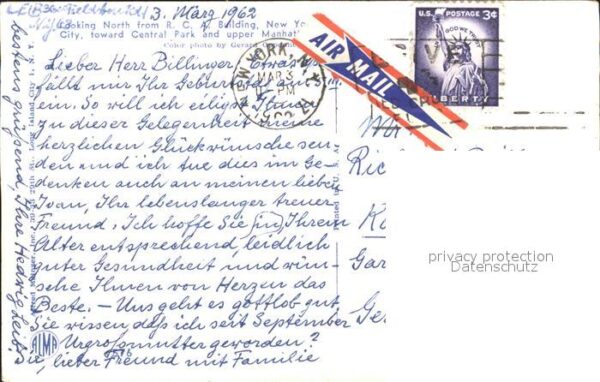 3. März 1962
Looking North from R. C. A. Building, New Yo
City, toward Central Park and upper Manhat
Color photo by
Lieber Herr Billmer, Etwas
fällt mir Ihr Geburtstag
ein. So will ich eiligst Ihnen
zu dieser Gelegenheit meine
herzlichen Glückwünsche sen-
den und ich tue dies im Ge-
denken auch an meinen lieben
Ivan, Ihr lebenslanger treuer
Freund. Ich hoffe Sie (in) Ihrem
Alter entsprechend, leidlich
guter Gesundheit und wün-
sche Ihnen von Herzen das
Beste. – Uns geht es gottlob gut
Sie wissen daß ich seit September
Urgroßmutter geworden?
Sie, lieber Freund mit Familie
bestens grüßend, Ihre Hedwig
Long Island City 1, N. Y.
ALMA
NEW YORK, N.Y.
MAR 3
PM
1962
AIR MAIL
U.S. POSTAGE 3¢
IN GOD WE TRUST
LIBERTY
Ric
Ka
Gar
Ge
privacy protection
Datenschutz